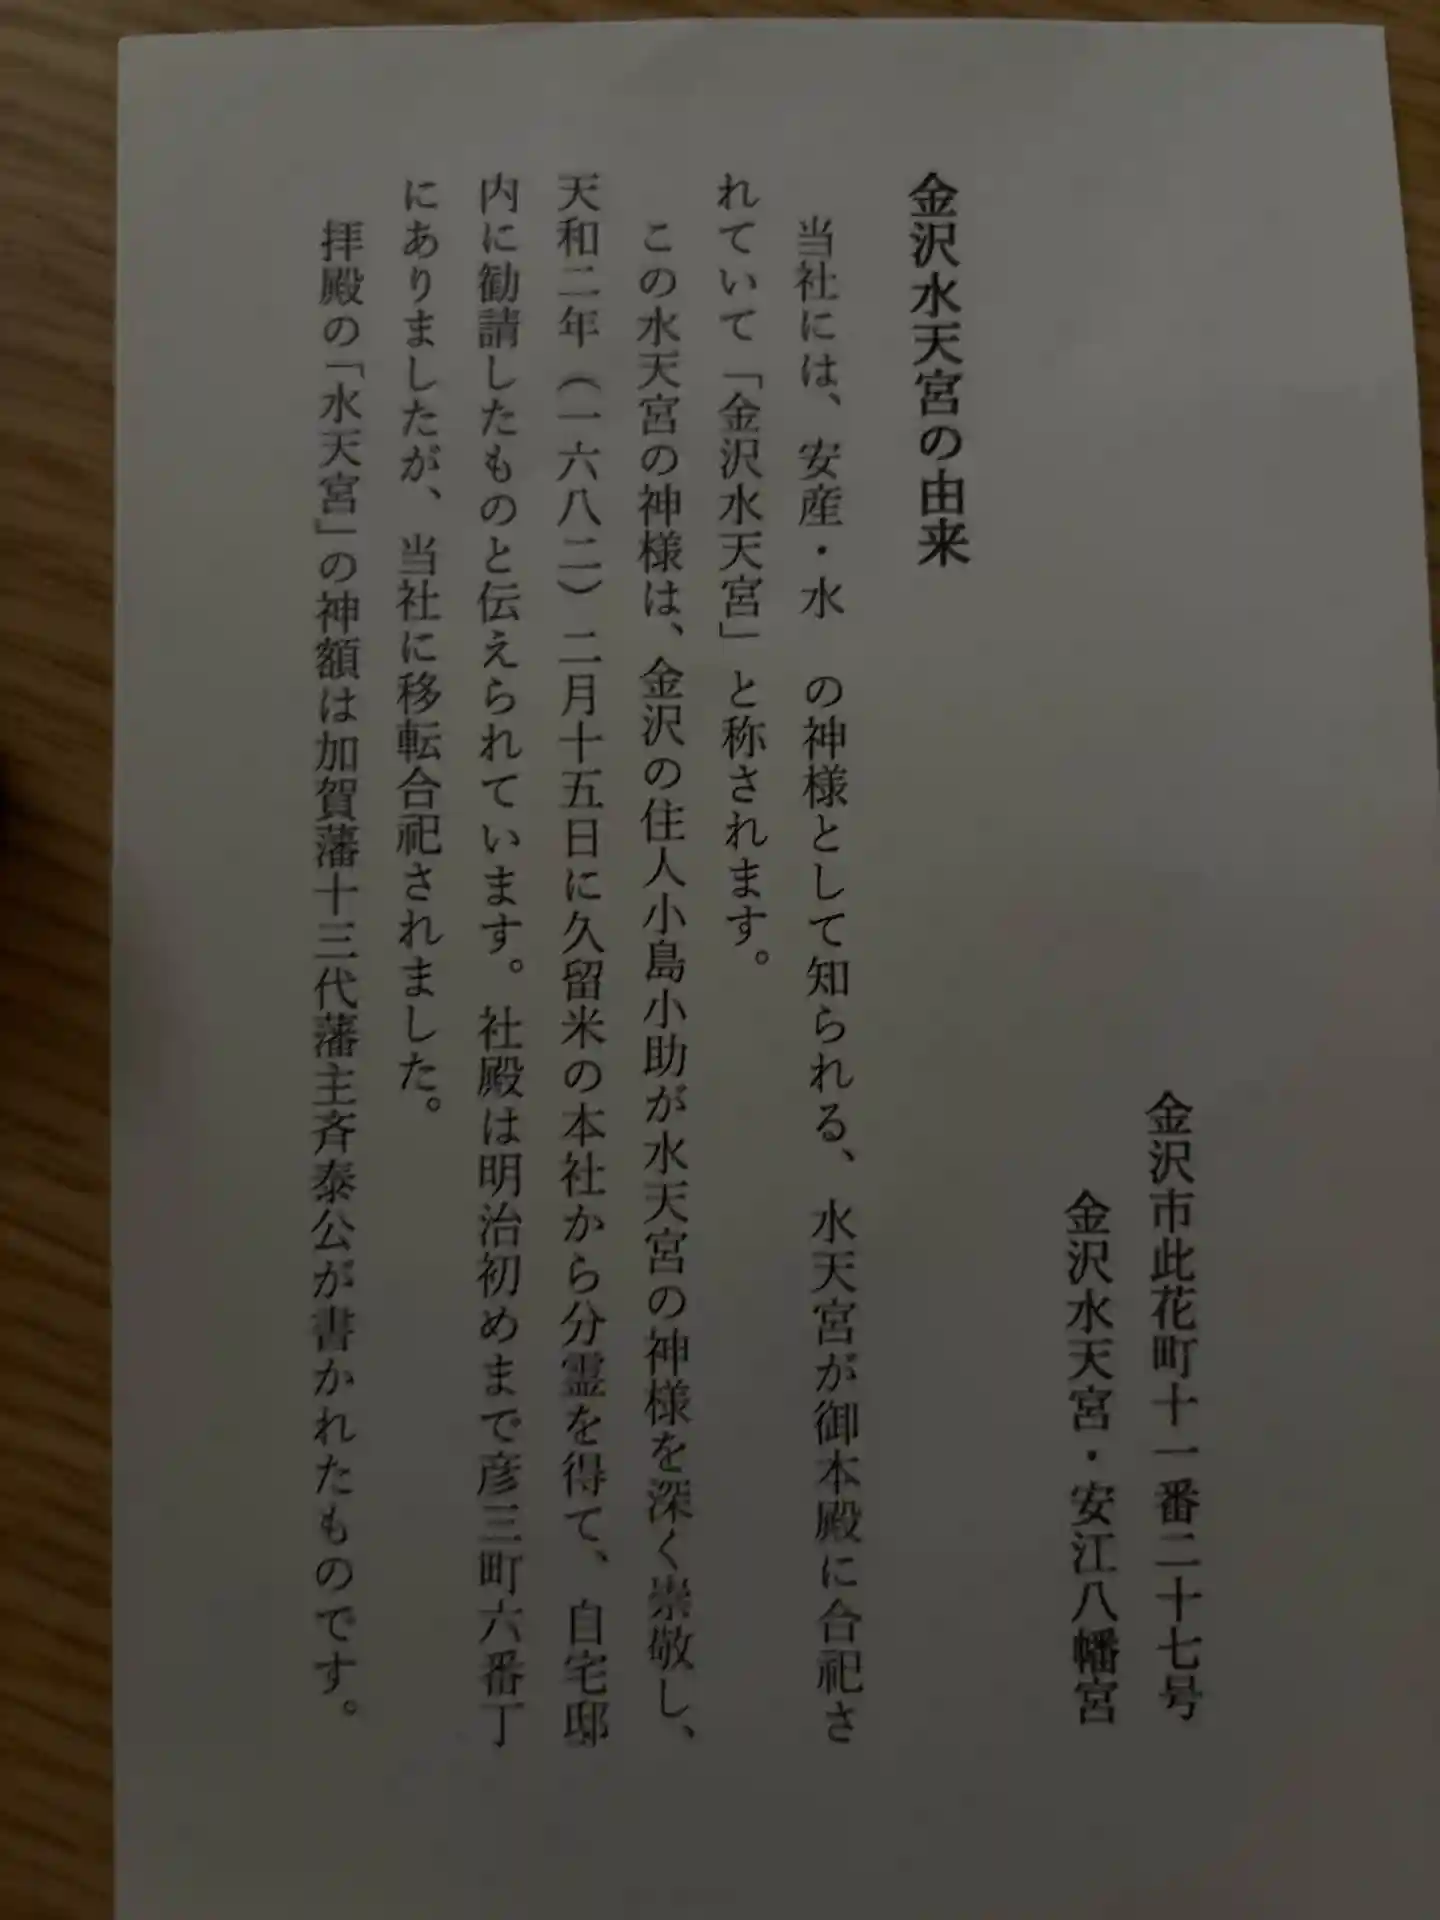 金沢市此花町十一番二十七号
金沢水天宮・安江八幡宮
金沢水天宮の由来
当社には、安産・水　の神様として知られる、水天宮が御本殿に合祀さ
れていて「金沢水天宮」と称されます。
この水天宮の神様は、金沢の住人小島小助が水天宮の神様を深く崇敬し、
天和二年（一六八二）二月十五日に久留米の本社から分霊を得て、自宅邸
内に勧請したものと伝えられています。社殿は明治初めまで彦三町六番丁
にありましたが、当社に移転合祀されました。
拝殿の「水天宮」の神額は加賀藩十三代藩主斉泰公が書かれたものです。